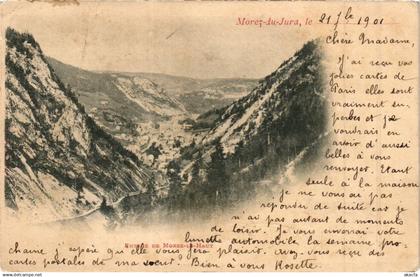 Morez-du-Jura, le 21 7bre 1901
Chère Madame,
J'ai reçu vos
jolies cartes de
Paris elles sont
vraiment sup-
erbes et je
voudrais en
avoir d'aussi
belles à vous
renvoyer. Etant
seule à la maison
je ne vous ai pas
répondu de suite car je
n'ai pas autant de moments
de loisir. Je vous enverrai votre
lunette automobile la semaine pro-
chaine j'espère qu'elle vous fera plaisir. Avez-vous reçu des
cartes postales de ma sœur? Bien à vous Rosette
Entrée de Morez-le-Haut